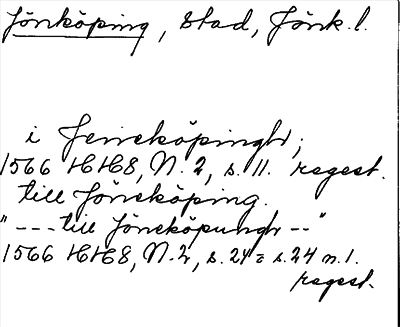 Jönköping, stad, Jönk. l.
i Jeneköpingh,
1566 HH8, N. 2, s. 11. regest.
till Jöneköping.
"--- till Jöneköpungh --"
1566 HH8, N. 2, s. 24 = s. 24 n. 1.
regest.